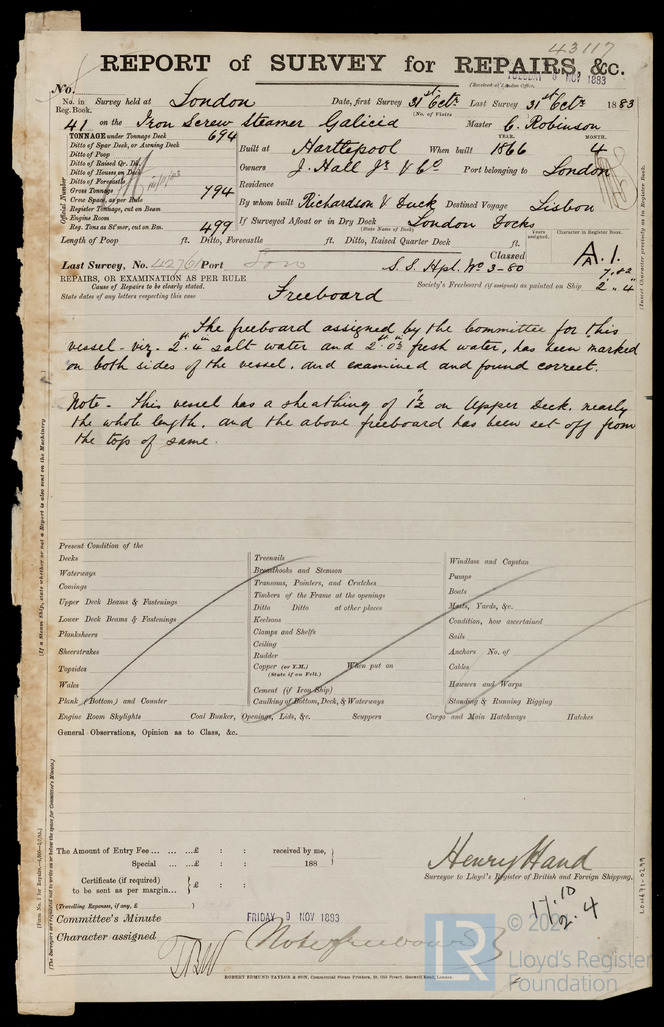 43117
REPORT of SURVEY for REPAIRS, &c.
TUESDAY 6 NOV 1883
(Received at London Office,
No.
No. in Reg. Book. Survey held at London Date, first Survey 31st Octr Last Survey 31st Octr 1883
(No. of Visits
41 on the Iron Screw Steamer Galicia Master C. Robinson
TONNAGE under Tonnage Deck 694
Ditto of Spar Deck, or Awning Deck
Ditto of Poop
Ditto of Raised Qr. Dk.
Ditto of Houses on Deck
Ditto of Forecastle
Gross Tonnage 794
Crew Space, as per Rule
Register Tonnage, cut on Beam
Engine Room
Reg. Tons as St'mer, cut on Bm. 499
Official Number
YEAR. MONTH.
Built at Hartlepool When built 1866 4
Owners J. Hall Jr & Co Port belonging to London
Residence
By whom built Richardson & Duck Destined Voyage Lisbon
If Surveyed Afloat or in Dry Dock London Docks
(State Name of Dock)
Years assigned. Character in Register Book.
Length of Poop ft. Ditto, Forecastle ft. Ditto, Raised Quarter Deck ft.
Last Survey, No. 42761 Port Lon
Classed A.1.
S.S. Hpl. No 3-80 7,82
REPAIRS, OR EXAMINATION AS PER RULE
Cause of Repairs to be clearly stated.
State dates of any letters respecting this case
Society's Freeboard (if assigned) as painted on Ship 2 " 4
Freeboard
The freeboard assigned by the Committee for this
vessel - viz - 2' 4" salt water and 2' 0½" fresh water, has been marked
on both sides of the vessel, and examined and found correct.
Note - This vessel has a sheathing of 1½" on Upper Deck, nearly
the whole length, and the above freeboard has been set off from
the top of same.
Present Condition of the
Decks
Waterways
Comings
Upper Deck Beams & Fastenings
Lower Deck Beams & Fastenings
Planksheers
Sheerstrakes
Topsides
Wales
Plank (Bottom) and Counter
Engine Room Skylights
Treenails
Breasthooks and Stemson
Transoms, Pointers, and Crutches
Timbers of the Frame at the openings
Ditto Ditto at other places
Keelsons
Clamps and Shelfs
Ceiling
Rudder
Copper (or Y.M.) When put on
(State if on Felt.)
Cement (if Iron Ship)
Caulking of Bottom, Deck, & Waterways
Windlass and Capstan
Pumps
Boats
Masts, Yards, &c.
Condition, how ascertained
Sails
Anchors No. of
Cables
Hawsers and Warps
Standing & Running Rigging
Coal Bunker, Openings, Lids, &c. Scuppers Cargo and Main Hatchways Hatches
General Observations, Opinion as to Class, &c.
The Amount of Entry Fee ... ... ...£ : : received by me,
Special ... ...£ : : 188
Certificate (if required) to be sent as per margin... £ : :
(Travelling Expenses, if any, £ )
Henry Hand
Surveyor to Lloyd's Register of British and Foreign Shipping.
17.10
2.4
Committee's Minute FRIDAY 9 NOV 1883
Character assigned Note freeboard
ROBERT EDMUND TAYLOR & SON, Commercial Steam Printers, 19, Old Street, Goswell Road, London.
(If a Steam Ship, state whether or not a Report is also sent on the Machinery
(The Surveyors are requested not to write on or below the space for Committee's Minute.)
LON671-0299
LR
Lloyd's Register
Foundation